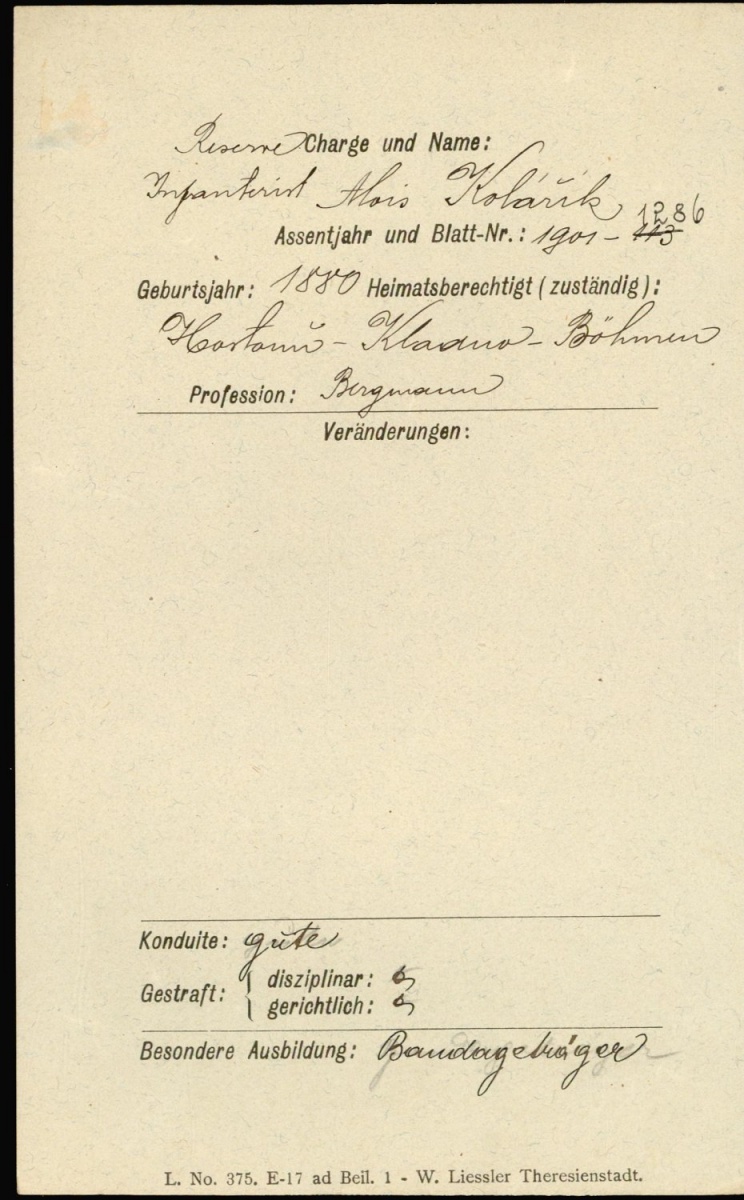 Reserve Charge und Name:
Infanterist Alois Kolářík
1286
Assentjahr und Blatt-Nr.: 1901 - 113
Geburtsjahr: 1880 Heimatsberechtigt (zuständig):
Hostouň - Kladno - Böhmen
Profession: Bergmann
Veränderungen:
Konduite: gute
Gestraft: { disziplinar: 0
gerichtlich: 0
Besondere Ausbildung: Bandageträger
L. No. 375. E-17 ad Beil. 1 - W. Liessler Theresienstadt.